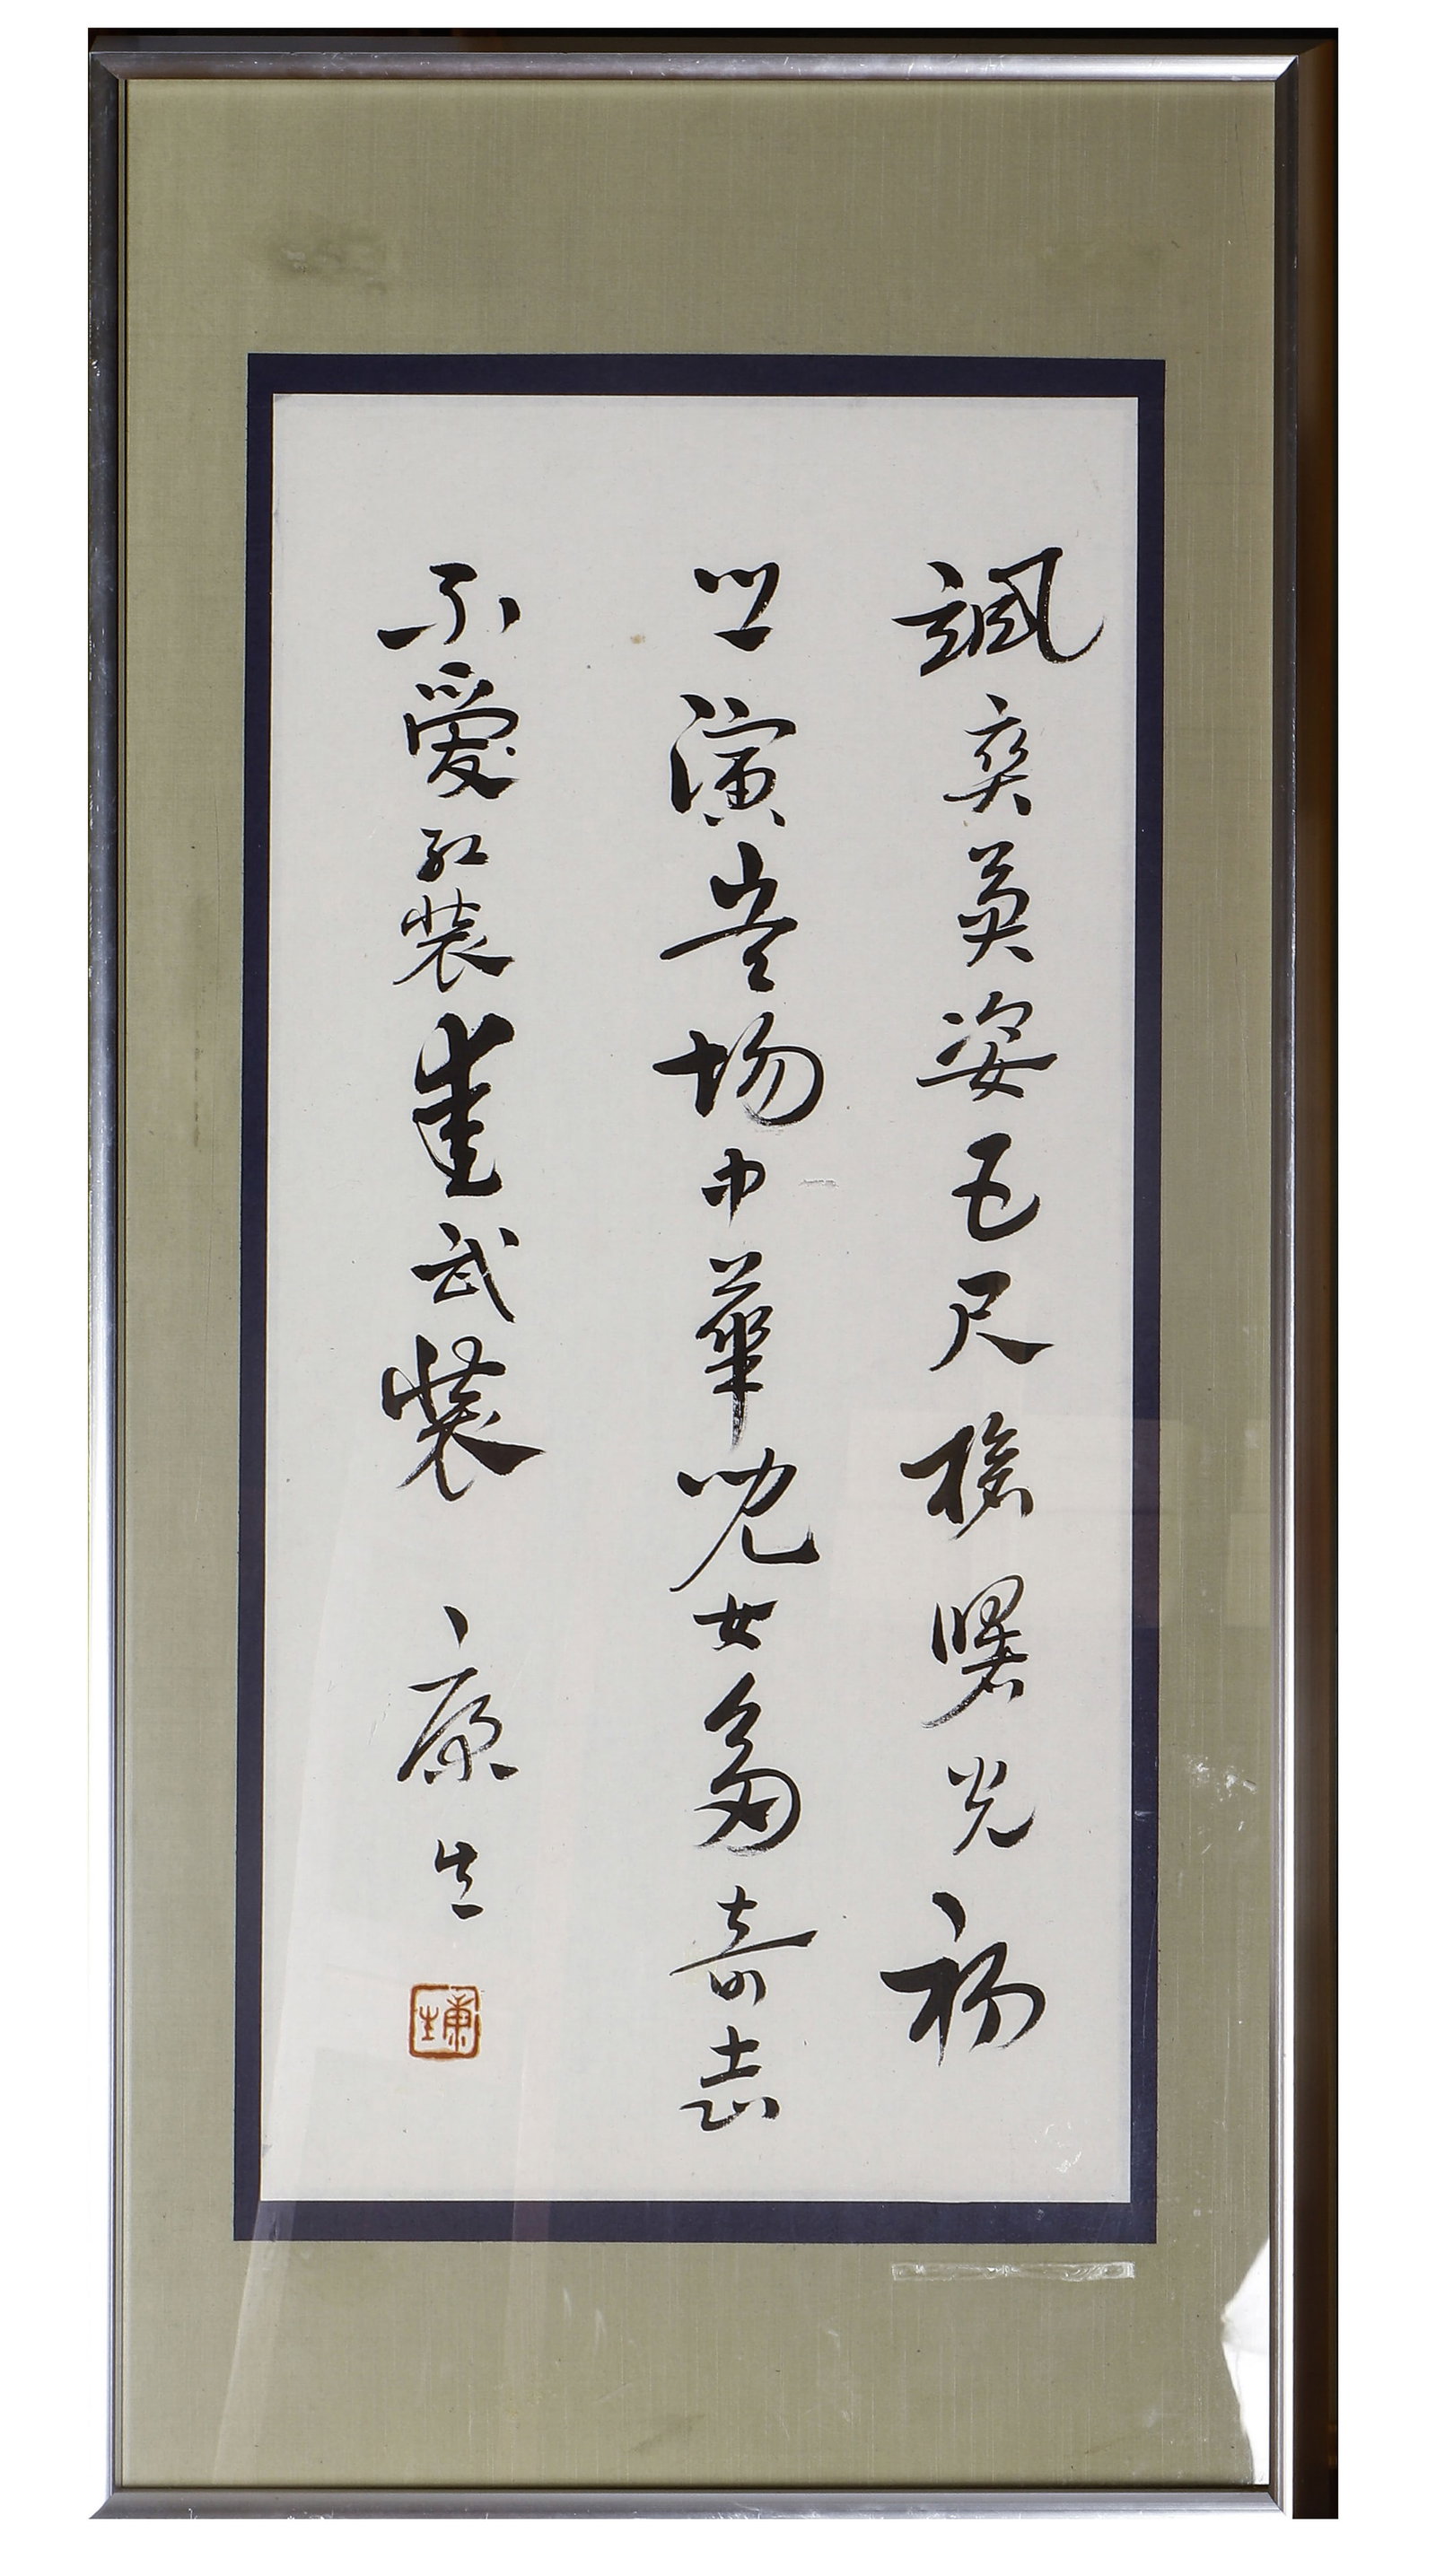 颯爽英姿五尺槍曙光初
照演兵場中華兒女多奇志
不愛紅裝愛武裝 康生
康生